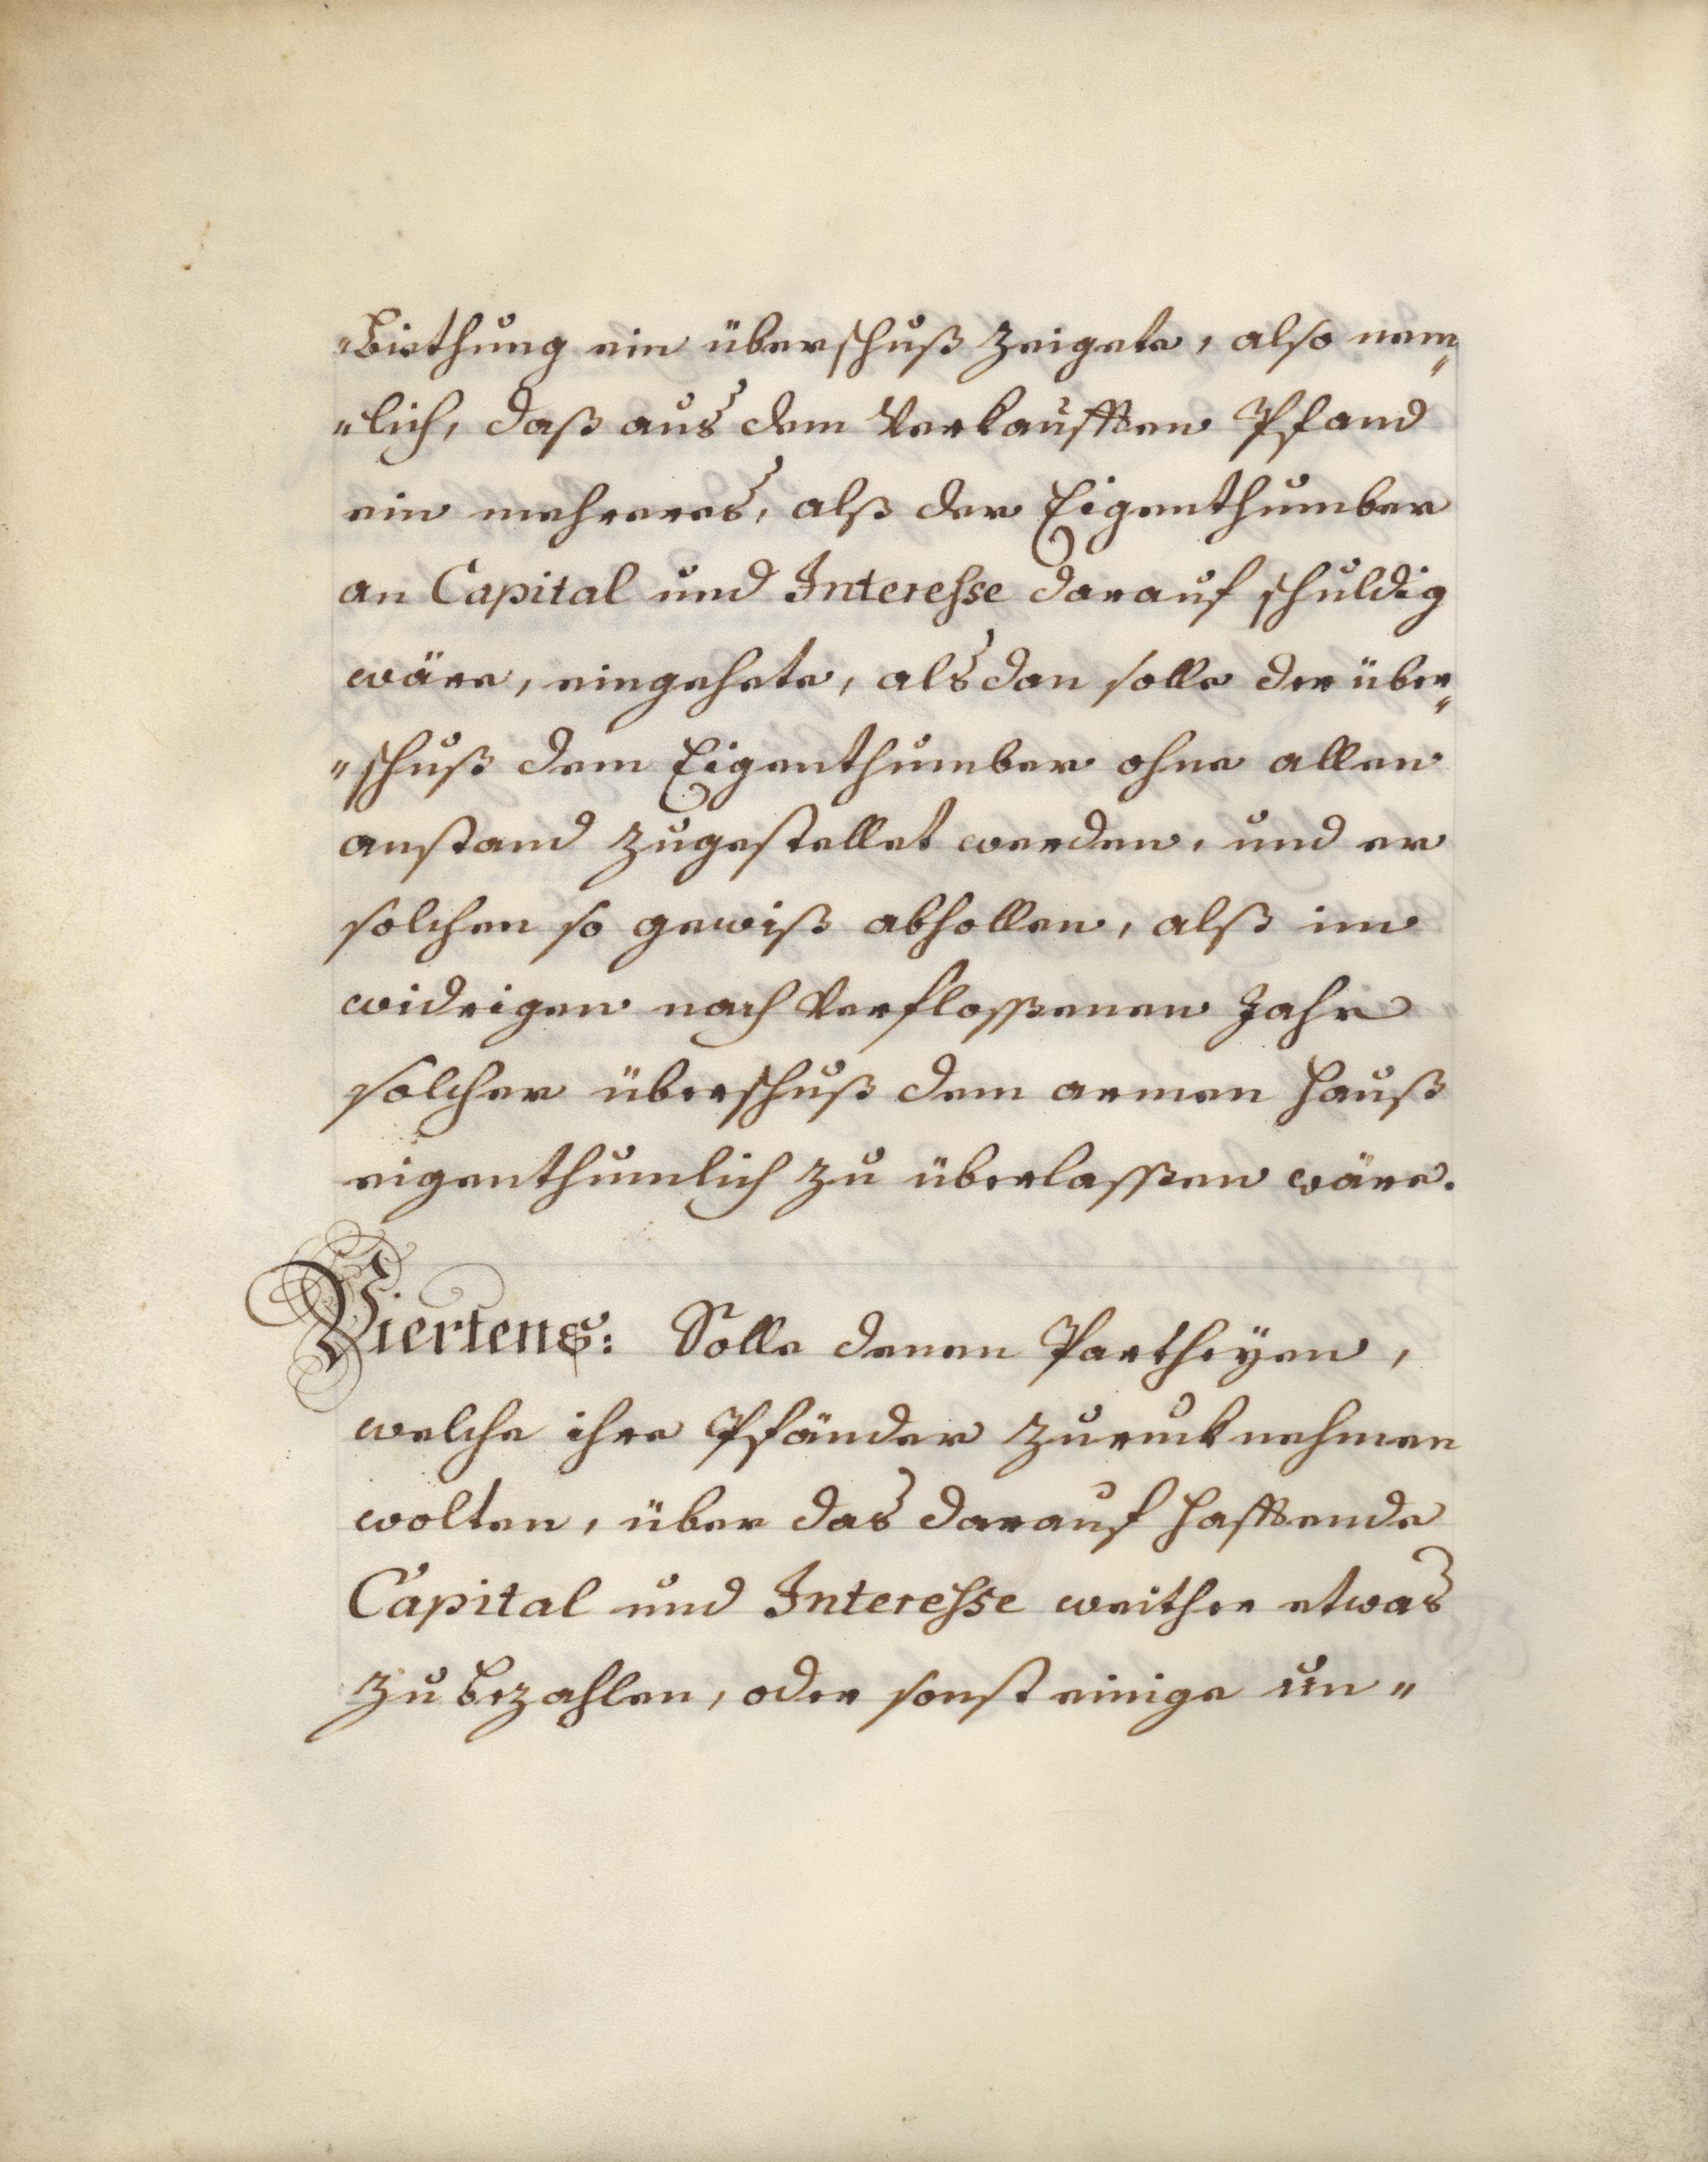 „Biethung ein überschuß zeigete, also nem„
„lich, daß aus dem Verkaufften Pfand
ein mehreres, alß der Eigenthumber
an Capital und Interesse darauf schuldig
wäre, eingehete, alsdan solle der über„
„schuß dem Eigenthumber ohne allen
anstand zugestellet werden, und er
solchen so gewiß abhollen, alß im
widrigen nach Verfloßenen Jahr
solcher überschuß dem armen Hauß
eigenthumlich zu überlaßen wäre.
Viertens: Solle denen Partheÿen,
welche ihre Pfänder zuruck nehmen
wolten, über das darauf hafftende
Capital und Interesse weither etwas
zu bezahlen, oder sonst einige un„